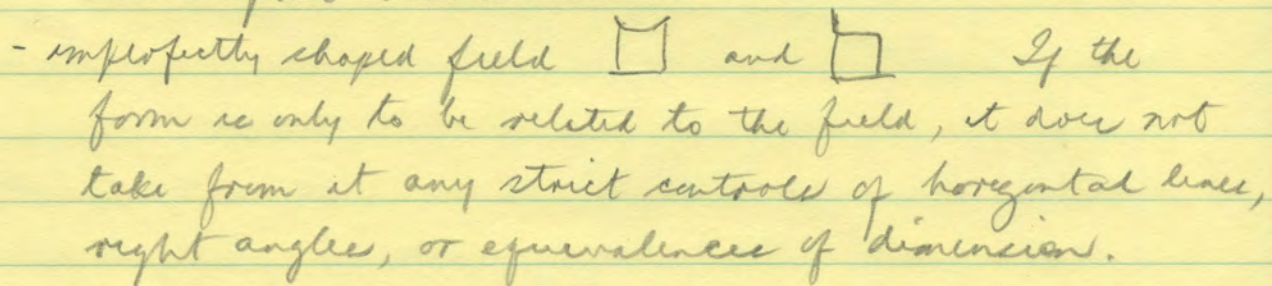 - improfectly shaped field and If the
form is only to be related to the field, it does not
take from it any strict controls of horizontal lines,
right angles, or equivalences of dimension.